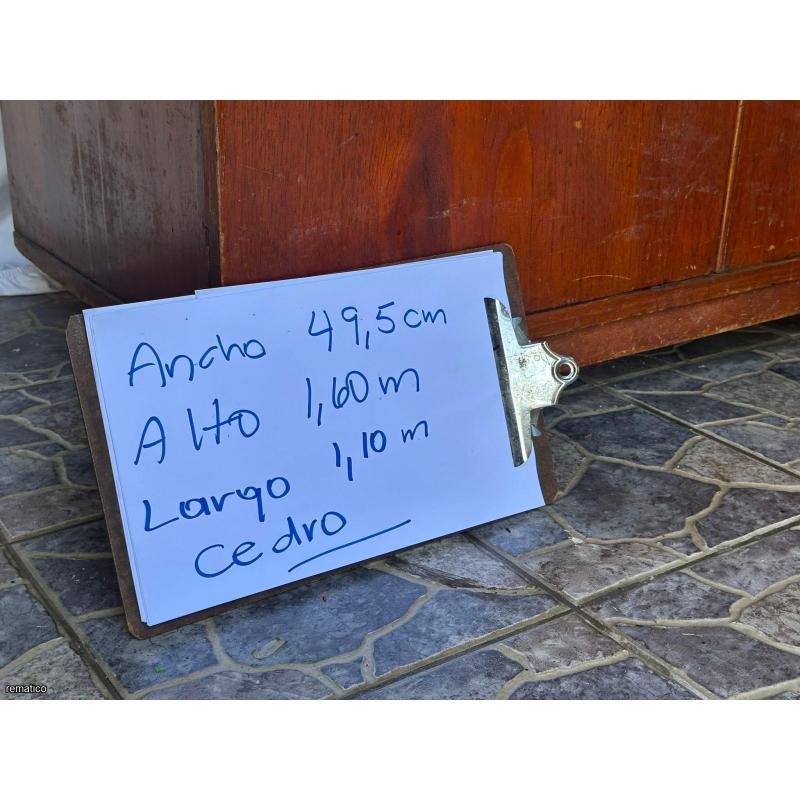 Ancho 49,5 cm
Alto 1,60 m
Largo 1,10 m
Cedro
rematico